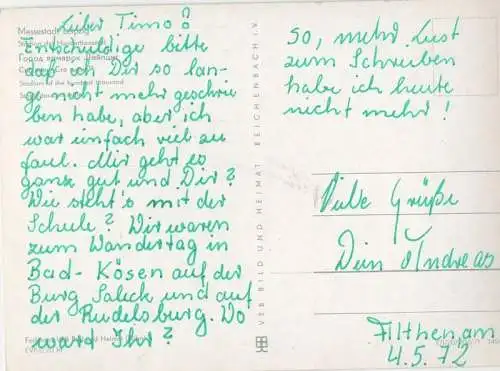 Lieber Timo!
Entschuldige bitte
daß ich Dir so lan-
ge nicht mehr geschrie
ben habe, aber ich
war einfach viel zu
faul. Mir geht es
ganz gut und Dir?
Wie steht's mit der
Schule? Wir waren
zum Wandertag in
Bad-Kösen auf der
Burg Saleck und auf
der Rudelsburg. Wo
ward Ihr?
Messestadt Leipzig
VEB BILD UND HEIMAT REICHENBACH i. V.
so, mehr Lust
zum Schreiben
habe ich heute
nicht mehr!
Viele Grüße
Dein Andreas
Althen am
4.5.72